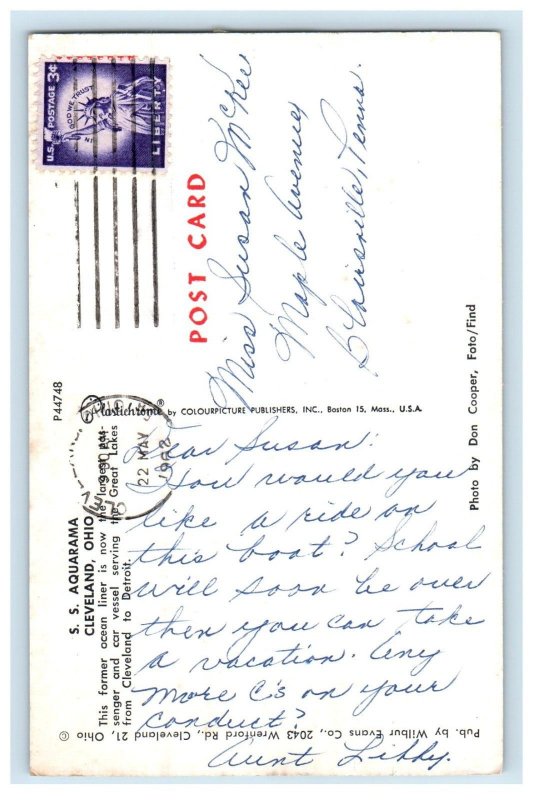 U.S. POSTAGE 3¢
IN GOD WE TRUST
LIBERTY
POST CARD
Miss Susan McKee
Maple Avenue,
Blairsville, Penna.
P44748
Plastichrome® by COLOURPICTURE PUBLISHERS, INC., Boston 15, Mass., U.S.A.
22 MAY
S. S. AQUARAMA
CLEVELAND, OHIO
This former ocean liner is now the largest pas-
senger and car vessel serving the Great Lakes
from Cleveland to Detroit.
Photo by Don Cooper, Foto/Find
Dear Susan:
How would you
like a ride on
this boat? School
will soon be over
then you can take
a vacation. Any
more C's on your
conduct?
Aunt Libby.
© Pub. by Wilbur Evans Co., 2043 Wrenford Rd., Cleveland 21, Ohio